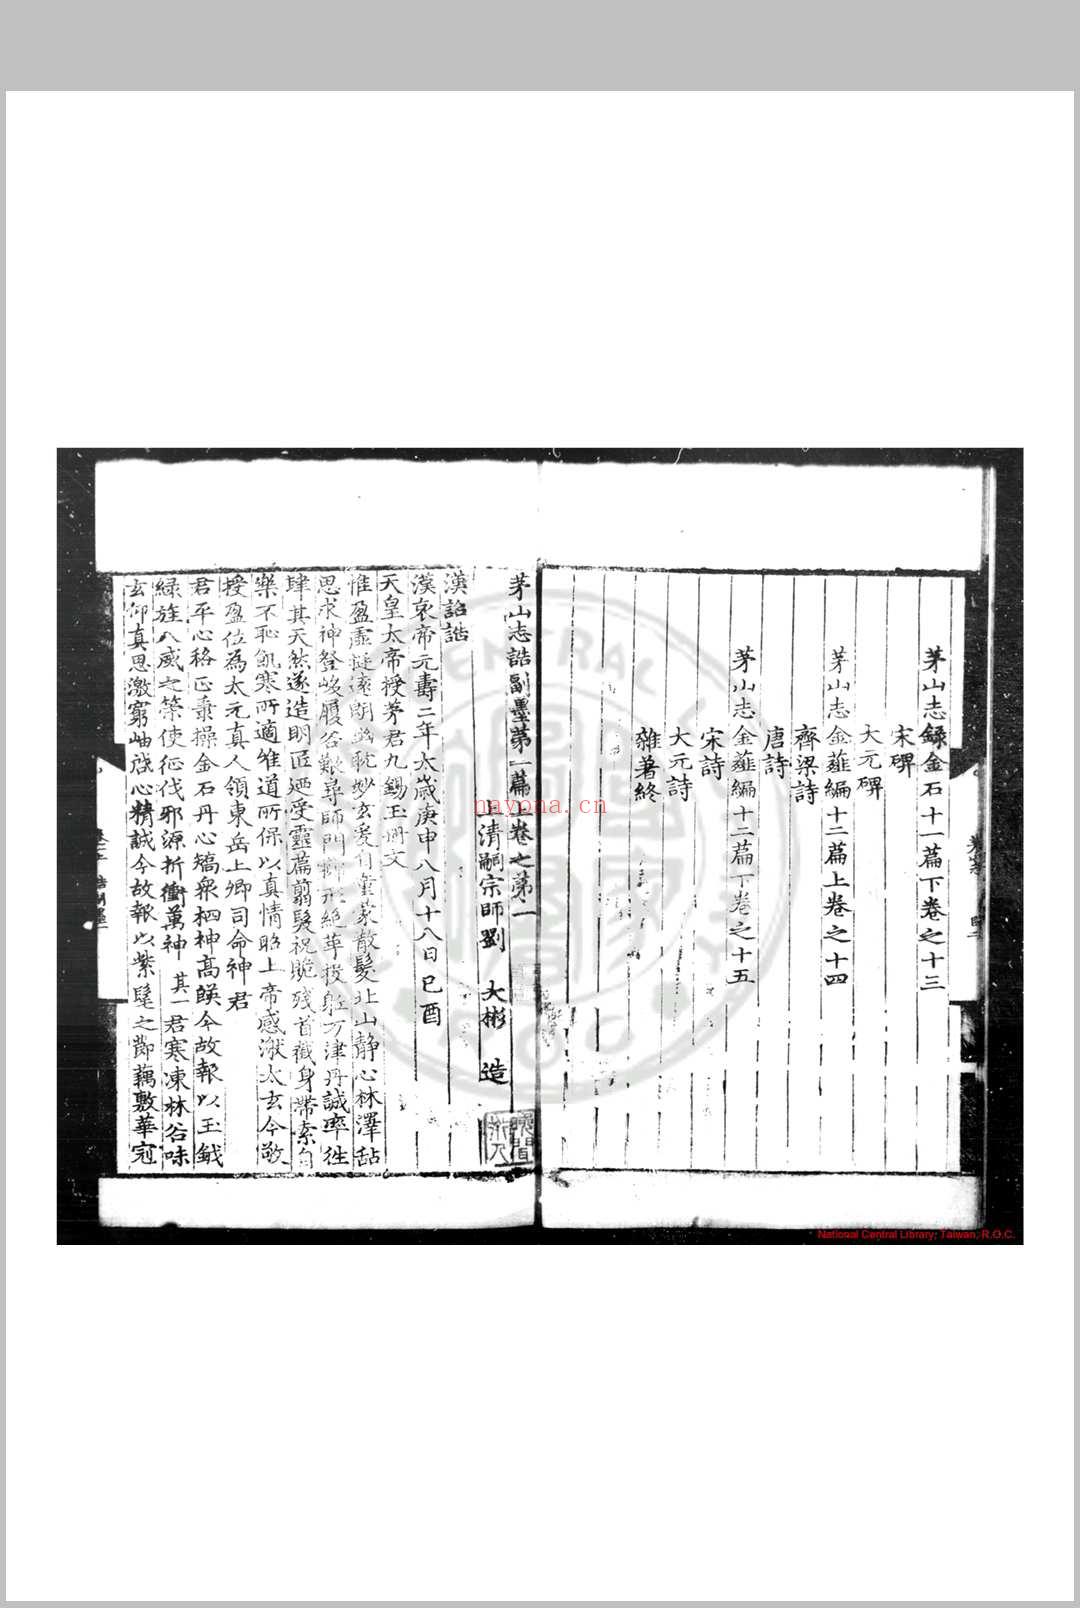 茅山志録金石十一篇下卷之十三
宋碑
大元碑
茅山志金薤編十二篇上卷之十四
齊梁詩
唐詩
茅山志金薤編十二篇下卷之十五
宋詩
大元詩
雜著終
茅山志誥副墨第一篇上卷之第一
上清嗣宗師劉 大彬 造
漢詔誥
漢哀帝元壽二年太歲庚申八月十八日己酉
天皇太帝授茅君九錫玉冊文
惟盈虛挺遠朗 耽妙玄愛自童蒙散髮北山静心林澤
思求神登峻履谷艱尋師門 形絕華投軀万津丹誠率往
肆其天然遂造明匠廼受靈篇剪髮祝脆殘首截身帶索自
樂不恥飢寒所適唯道所保以真情昭上帝感湫太玄今敬
授盈位為太元真人領東岳上卿司命神君
君平心格正秉操金石丹心矯眾栖神高暎今故報以玉鉞
緑旌八威之策使征伐邪源折衝萬神 其一 君寒凍林谷味
玄仰真思激窮岫啟心精誠今故報以紫髦之節藕敷華冠
nayona.cn
National Central Library, Taiwan, R.O.C.